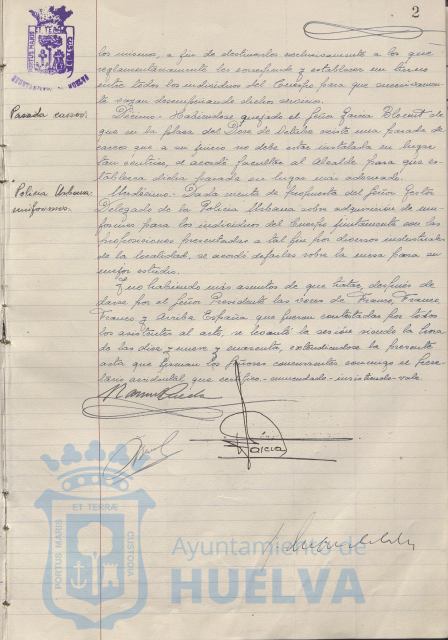 2
los mismos, a fin de destinarlos exclusivamente a los que
reglamentariamente les corresponda y establecer un turno
entre todos los individuos del Cuerpo para que sucesivamen-
te vayan desempeñando dichos servicios.
Parada carros.
Décimo.- Habiéndose quejado el señor García
que en la plaza del Doce de Octubre existe una parada de
carros que a su juicio no debe estar instalada en lugar
tan céntrico, se acordó facultar al Alcalde para que es-
tablezca dicha parada en lugar más adecuado.
Policía Urbana:
uniformes.
Undécimo.- Dada cuenta de propuesta del señor Gestor
Delegado de la Policía Urbana sobre adquisición de uni-
formes para los individuos del Cuerpo juntamente con las
proposiciones presentadas a tal fin por diversos industriales
de la localidad, se acordó dejarlas sobre la mesa para su
mejor estudio.
Y no habiendo más asuntos de que tratar, después de
darse por el señor Presidente las voces de Franco, Franco,
Franco y Arriba España que fueron contestadas por todos
los asistentes al acto, se levantó la sesión siendo la hora
de las diez y nueve y cuarenta, extendiéndose la presente
acta que firman los señores concurrentes conmigo el Secre-
tario accidental que certifico.-enmendado-
vale.
García
PORTUS MARIS
ET TERRÆ
CUSTODIA
Ayuntamiento de
HUELVA